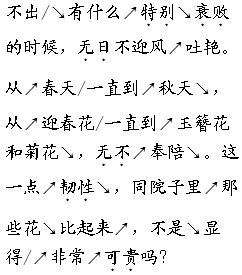 不出/↘有什么↗特别↘衰败
的时候，无日不迎风↗吐艳。
从↗春天/一直到↗秋天↘，
从↗迎春花/一直到↗玉簪花
和菊花↘，无不↗奉陪↘。这
一点↗韧性↘，同院子里↗那
些花↘比起来↗，不是↘显
得/↗非常↗可贵吗？